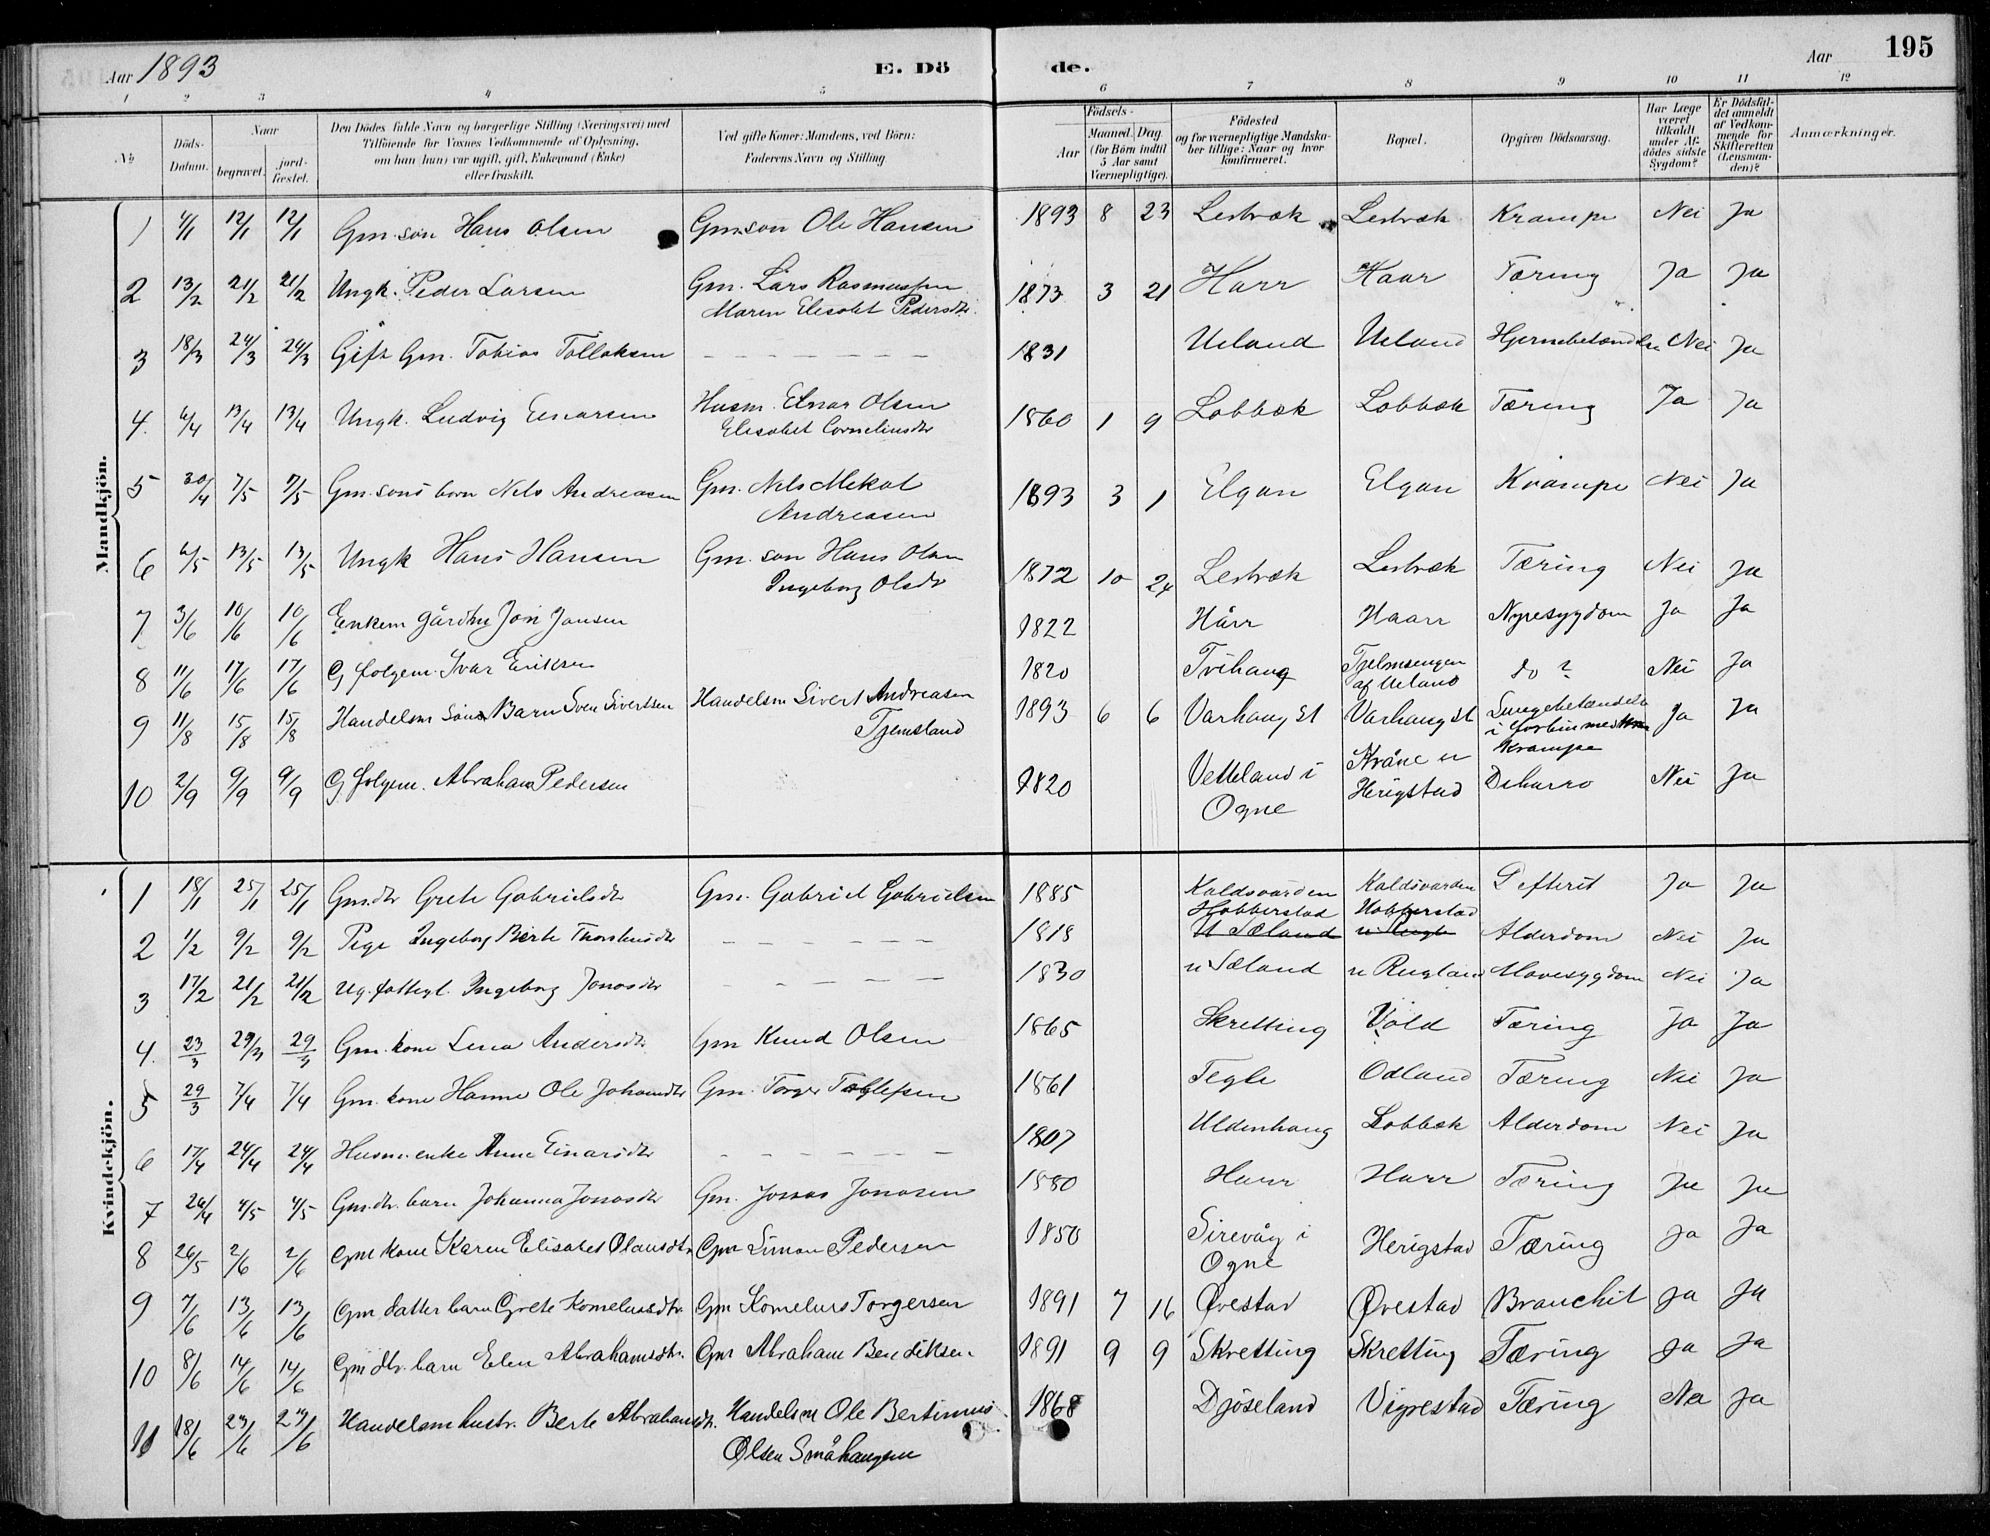 Aar 1893 E. Dö de. Aar 195
1 2 3 4 5 6 7 8 9 10 11 12
№ Döds-Datum. Naar begravet. jordfæstet. Den Dödes fulde Navn og borgerlige Stilling (Næringsvei) med Tilföiende for Voxnes Vedkommende af Oplysning, om han (hun) var ugift, gift, Enkemand (Enke) eller fraskilt. Ved gifte Koner: Mandens, ved Börn: Faderens Navn og Stilling. Födsels- Aar Maaned. Dag (for Börn indtil 5 Aar samt Værnepligtige). Födested og for værnepligtige Mandskaber tillige: Naar og hvor konfirmeret. Bopæl. Opgiven Dödsaarsag. Har Læge været tilkaldt under Afdödes sidste Sygdom? Er Dödsfaldet anmeldt af Vedkommende for Skifteretten (Lensmanden)? Anmærkninger.
Mandkjön.
1 4/1 12/1 12/1 Gm. søn Hans Olsen Gm. søn Ole Hansen 1893 8 23 Lestræk Lestræk Krampe Nei Ja
2 13/2 21/2 21/2 Ungk. Peder Larsen Gm. Lars Rasmussen 1873 3 21 Harr Haar Tæring Ja Ja
Maren Elisabet Pedersdtr
3 18/3 24/3 24/3 Gift Gm. Tobias Tollaksen 1831 Ueland Ueland Hjernebetændelse Nei Ja
4. 6/4 13/4 13/4 Ungk. Ludvig Einarsen Husm. Einar Olsen 1860 1 9 Lobbæk Lobbæk Tæring Ja Ja
Elisabet Corneliusdtr
5 30/4 7/5 7/5 Gm. søns barn Nils Andreasen Gm. Nils Mikal 1893 3 1 Elgan Elgan Krampe Nei Ja
Andreasen
6 6/5 13/5 13/5 Ungk Hans Hansen Gm. søn Hans Olsen 1872 10 24 Lestræk Lestræk Tæring Nei Ja
Ingeborg Olsdtr
7 3/6 10/6 10/6 Enkem gårdm Jon Jonsen 1822 Hårr Haarr Nyresygdom Ja Ja
8 11/6 17/6 17/6 G folgem. Ivar Eriksen 1820 Tvihaug Tjelmsengen af Ueland do ? Nei Ja
9 11/8 15/8 15/8 Handelsm Søns Barn Sven Sivertsen Handelsm Sivert Andreasen 1893 6 6 Varhaug St Varhaug st Lungebetændelse i forbin med Ja Ja
Tjemsland Krampe
10 2/9 9/9 9/9 G folgem. Abraham Pedersen 1820 Vetteland i Ogne Kråne u Herigstad Diharro Nei Ja
Kvindekjön.
1 18/1 25/1 25/1 Gm. dtr Grete Gabrielsdtr Gm. Gabriel Gabrielsen 1885 Koldsvarden Koldsvarden Difterit Ja Ja
2 1/2 9/2 9/2 Pige Ingeborg Berte Thorsteinsdtr 1818 Hobberstad Hobberstad Alderdom Nei Ja
3 17/2 21/2 21/2 Ug. fattegl. Ingeborg Jonasdtr 1830 n Sæland n Rugland Mavesygdom Nei Ja
4. 23/3 29/3 29/3 Gm. kone Lina Andersdtr Gm Knud Olsen 1865 Skretting Vold Tæring Ja Ja
5 29/3 7/4 7/4 Gm. kone Hanne Ole Johansdtr Gm. Torger Tollefsen 1861 Tegle Odland Tæring Nei Ja
6 17/4 24/4 24/4 Husm. enke Anne Einarsdtr 1807 Uldenhaug Lobbæk Alderdom Nei Ja
7 26/4 4/5 4/5 Gm. dr. barn Johanna Jonasdtr Gm. Jonas Jonasen 1880 Harr Harr Tæring Ja Ja
8 26/5 2/6 2/6 Gm kone Karen Elisabet Olausdtr Gm Simon Pedersen 1850 Sirevåg i Ogne Herigstad Tæring Ja Ja
9 7/6 13/6 13/6 Gm datter barn Grete Korneliusdtr. Gm Kornelius Torgersen 1891 7 16 Øvestad Øvestad Bronchit Ja Ja
10 8/6 14/6 14/6 Gm dtr. barn Elen Abrahamsdtr. Gm Abraham Bendiksen 1891 9 9 Skretting Skretting Tæring Ja Ja
11 18/6 23/6 23/6 Handelsm hustr. Berte Abrahamsdtr. Handelsm Ole Bertinius 1868 Djøseland Vigrestad Tæring Nei Ja
Olsen Småhaugen